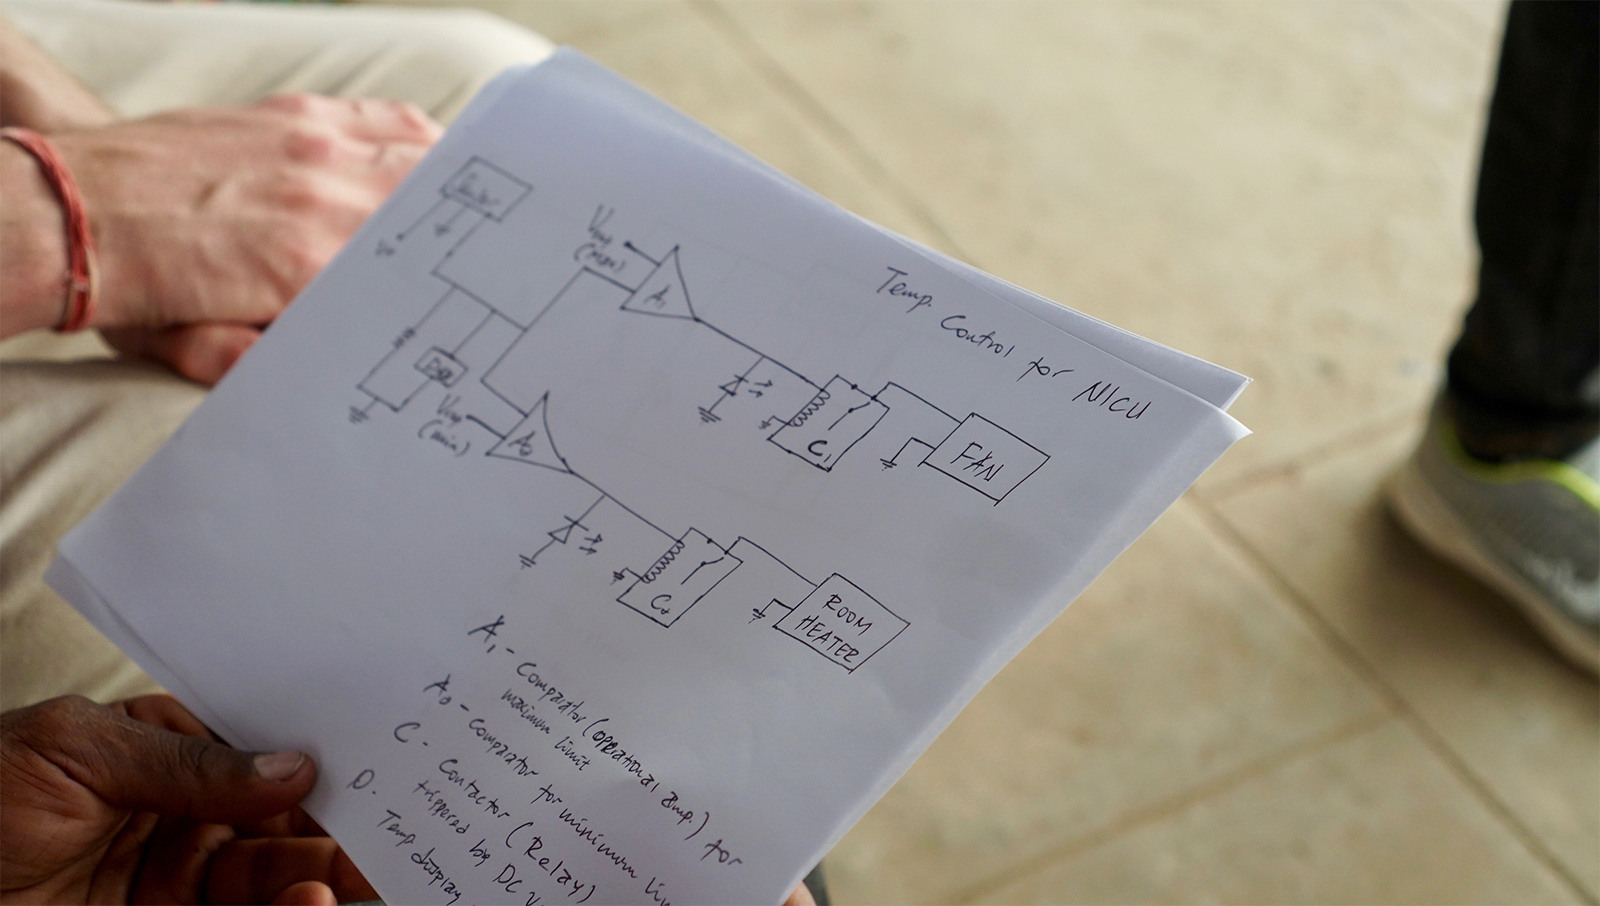 Temp. Control for NICU
V
(max)
A₁
C₁
FAN
V
(min)
A₀
C₂
ROOM
HEATER
A₁ - Comparator (operational amp.) for
maximum limit
A₀ - Comparator for minimum
C - Contactor (Relay)
triggered by DC
D. Temp display